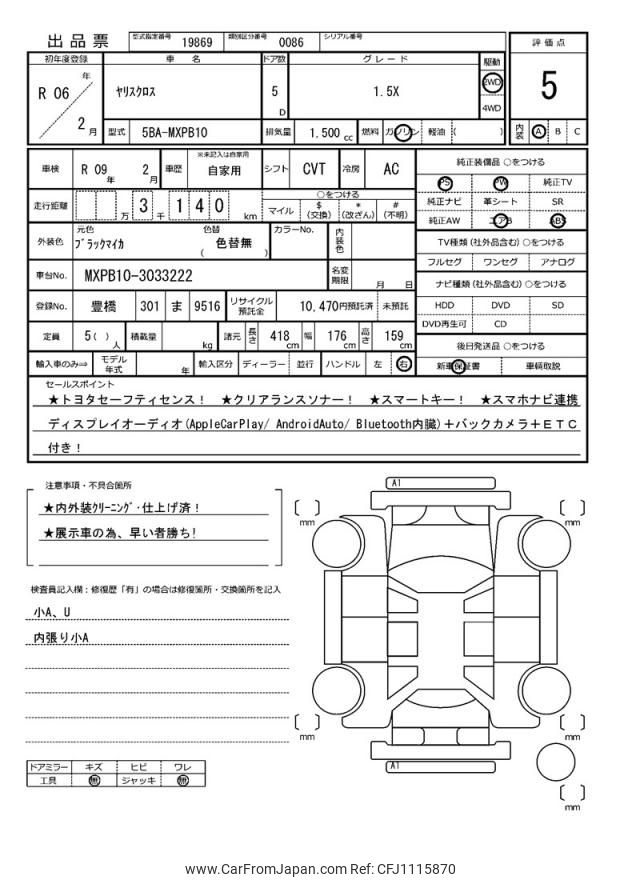 出品票 型式指定番号 19869 類別区分番号 0086 シリアル番号
初年度登録 車名 ドア数 グレード 駆動 評価点
R 06 年 2 月 ヤリスクロス 5 D 1.5X 2WD 4WD 5
型式 5BA-MXPB10 排気量 1.500 cc 燃料 ガソリン 軽油 ( ) 内装 A B C
車検 R 09 年 2 月 車歴 ※未記入は自家用 自家用 シフト CVT 冷房 AC 純正装備品 ○をつける
PS PW 純正TV
走行距離 万 3 千 140 km ○をつける 純正ナビ 革シート SR
マイル $(交換) *(改ざん) #(不明) 純正AW エアB ABS
外装色 元色 ブラックマイカ 色替 ( 色替無 ) カラーNo. 内装色 TV種類 (社外品含む) ○をつける
フルセグ ワンセグ アナログ
車台No. MXPB10-3033222 名変期限 月 日 ナビ種類 (社外品含む) ○をつける
登録No. 豊橋 301 ま 9516 リサイクル預託金 10,470円預託済 未預託 HDD DVD SD
DVD再生可 CD
定員 5( ) 人 積載量 kg 諸元 長さ 418 cm 幅 176 cm 高さ 159 cm 後日発送品 ○をつける
輸入車のみ⇒ モデル年式 年 輸入区分 ディーラー 並行 ハンドル 左 右 新車保証書 車輌取説
セールスポイント
★トヨタセーフティセンス! ★クリアランスソナー! ★スマートキー! ★スマホナビ連携
ディスプレイオーディオ(AppleCarPlay/ AndroidAuto/ Bluetooth内臓)+バックカメラ+ETC
付き!
注意事項・不具合箇所
★内外装クリーニング・仕上げ済!
★展示車の為、早い者勝ち!
検査員記入欄:修復歴「有」の場合は修復箇所・交換箇所を記入
小A、U
内張り小A
ドアミラー キズ ヒビ ワレ
工具 無 ジャッキ 無
A1
mm mm
mm mm
A1
mm
www.CarFromJapan.com Ref: CFJ1115870